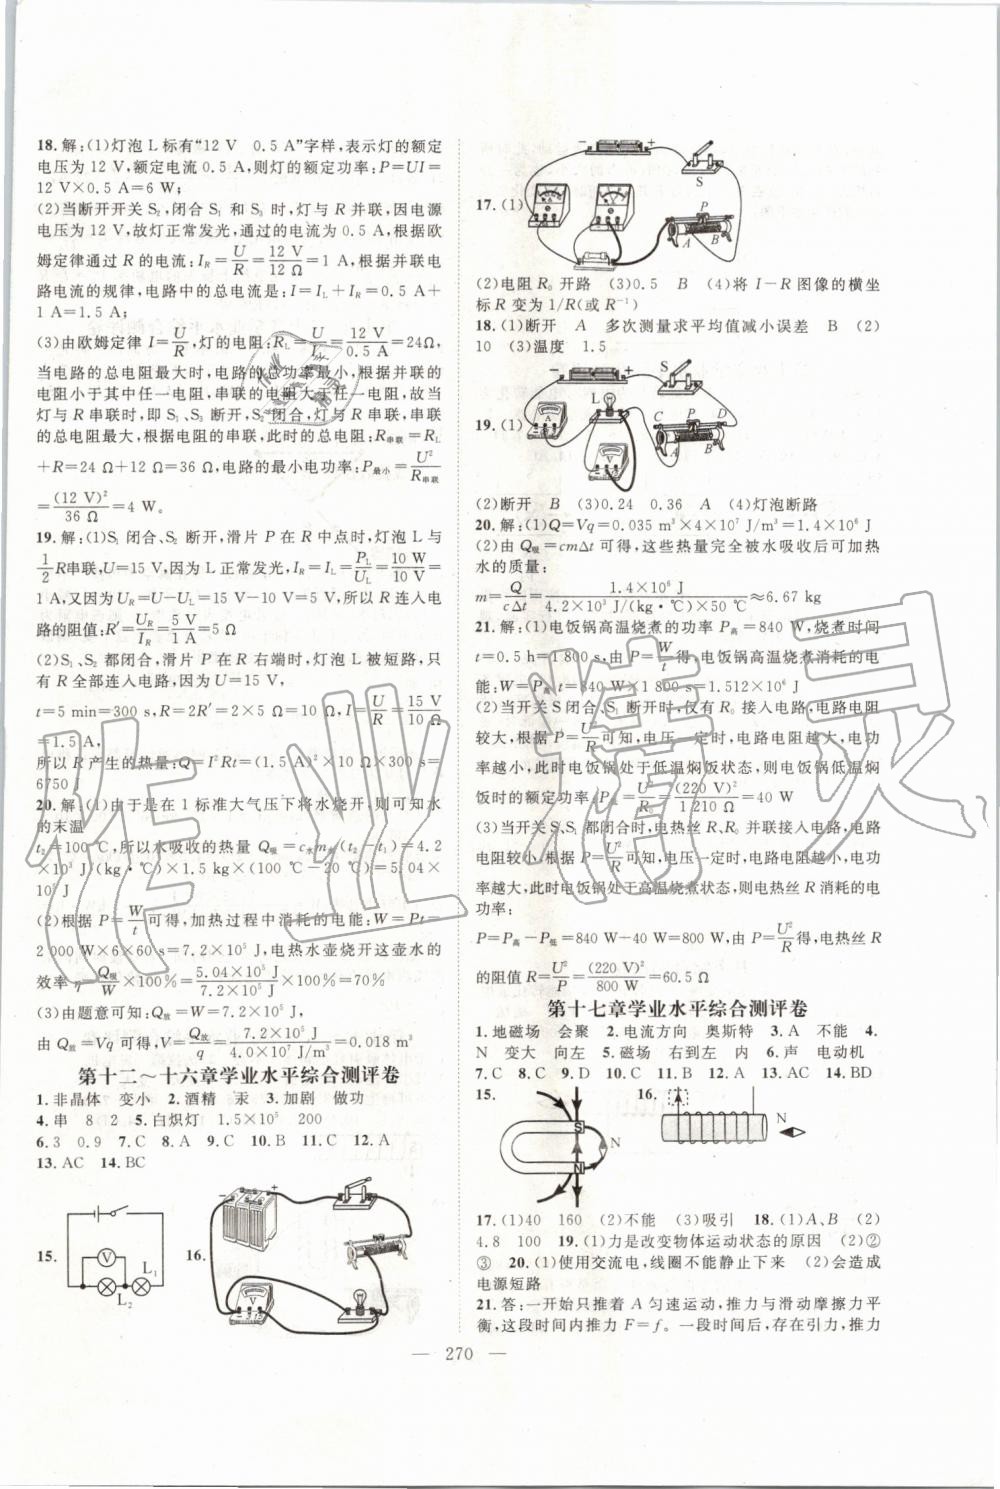 18.解:(1)灯泡 L 标有“12 V　0.5 A”字样,表示灯的额定
电压为 12 V,额定电流 0.5 A,则灯的额定功率:P=UI=
12 V×0.5 A=6 W;
(2)当断开开关 S₂,闭合 S₁ 和 S₃ 时,灯与 R 并联,因电源
电压为 12 V,故灯正常发光,通过的电流为 0.5 A,根据欧
姆定律通过 R 的电流:I_R=U/R=12 V/12 Ω=1 A,根据并联电
路电流的规律,电路中的总电流是:I=I_L+I_R=0.5 A+
1 A=1.5 A;
(3)由欧姆定律 I=U/R,灯的电阻:R_L=U/I_L=12 V/0.5 A=24Ω,
当电路的总电阻最大时,电路的总功率最小,根据串联的
电阻大于其中任一电阻,并联的电阻小于任一电阻,故当
灯与 R 串联时,即 S₁、S₃ 断开,S₂ 闭合,灯与 R 串联,串联
的总电阻最大,根据电阻的串联,此时的总电阻:R串联=R_L
+R=24 Ω+12 Ω=36 Ω,电路的最小电功率:P最小=U²/R串联
=(12 V)²/36 Ω=4 W。
19.解:(1)S₁ 闭合、S₂ 断开,滑片 P 在 R 中点时,灯泡 L 与
1/2 R串联,U=15 V,灯泡 L 正常发光,I_R=I_L=P_L/U_L=10 W/10 V=
1 A,又因为 U_R=U−U_L=15 V−10 V=5 V,所以 R 连入电
路的阻值:R′=U_R/I_R=5 V/1 A=5 Ω
(2)S₁、S₂ 都闭合,滑片 P 在 R 右端时,灯泡 L 被短路,只
有 R 全部连入电路,因为 U=15 V,
t=5 min=300 s,R=2R′=2×5 Ω=10 Ω,I=U/R=15 V/10 Ω
=1.5 A,
所以 R 产生的热量:Q=I²Rt=(1.5 A)²×10 Ω×300 s=
6750
20.解:(1)由于是在 1 标准大气压下将水烧开,则可知水
的末温
t₂=100 ℃,所以水吸收的热量 Q吸=c水m水(t₂−t₁)=4.2
×10³ J/(kg·℃)×1.5 kg×(100 ℃−20 ℃)=5.04×
10⁵ J
(2)根据 P=W/t可得,加热过程中消耗的电能:W=Pt=
2 000 W×6×60 s=7.2×10⁵ J,电热水壶烧开这壶水的
效率 η=Q吸/W×100%=5.04×10⁵ J/7.2×10⁵ J×100%=70%
(3)由题意可知:Q放=W=7.2×10⁵ J,
由 Q放=Vq 可得,V=Q放/q=7.2×10⁵ J/4.0×10⁷ J/m³=0.018 m³
第十二～十六章学业水平综合测评卷
1.非晶体　变小　2.酒精　汞　3.加剧　做功
4.串　8　2　5.白炽灯　1.5×10⁵　200
6.3　0.9　7.C　8.A　9.C　10.B　11.C　12.A
13.AC　14.BC
15.
V
L₁
L₂
16.
−
+
V
17.(1)
−
+
S
A
V
P
A
B
(2)电阻 R₀ 开路　(3)0.5　B　(4)将 I−R 图像的横坐
标 R 变为 1/R(或 R⁻¹)
18.(1)断开　A　多次测量求平均值减小误差　B　(2)
10　(3)温度　1.5
19.(1)
−
+
S
L
A
V
C
P
D
A
B
(2)断开　B　(3)0.24　0.36　A　(4)灯泡断路
20.解:(1)Q=Vq=0.035 m³×4×10⁷ J/m³=1.4×10⁶ J
(2)由 Q吸=cmΔt 可得,这些热量完全被水吸收后可加热
水的质量:
m=Q/cΔt=1.4×10⁶ J/4.2×10³ J/(kg·℃)×50 ℃≈6.67 kg
21.解:(1)电饭锅高温烧煮的功率 P高=840 W,烧煮时间
t=0.5 h=1 800 s;由 P=W/t得,电饭锅高温烧煮消耗的电
能:W=P高 t=840 W×1 800 s=1.512×10⁶ J
(2)当开关 S闭合、S₁断开时,仅有 R₀ 接入电路,电路电阻
较大,根据 P=U²/R可知,电压一定时,电路电阻越大,电功
率越小,此时电饭锅处于低温焖饭状态,则电饭锅低温焖
饭时的额定功率:P低=U²/R₀=(220 V)²/1 210 Ω=40 W
(3)当开关 S、S₁ 都闭合时,电热丝 R、R₀ 并联接入电路,电路
电阻较小,根据 P=U²/R可知,电压一定时,电路电阻越小,电功
率越大,此时电饭锅处于高温烧煮状态,则电热丝 R 消耗的电
功率:
P=P高−P低=840 W−40 W=800 W,由 P=U²/R得,电热丝 R
的阻值 R=U²/P=(220 V)²/800 W=60.5 Ω
第十七章学业水平综合测评卷
1.地磁场　会聚　2.电流方向　奥斯特　3.A　不能　4.
N　变大　向左　5.磁场　右到左　内　6.声　电动机
7.C　8.C　9.D　10.C　11.B　12.A　13.AC　14.BD
15.
S
N
N
16.
N
17.(1)40　160　(2)不能　(3)吸引　18.(1)A、B　(2)
4.8　100　19.(1)力是改变物体运动状态的原因　(2)②
③　20.(1)使用交流电,线圈不能静止下来　(2)会造成
电源短路
21.答:一开始只推着 A 匀速运动,推力与滑动摩擦力平
衡,这段时间内推力 F=f。一段时间后,存在引力,推力
— 270 —
作业精灵